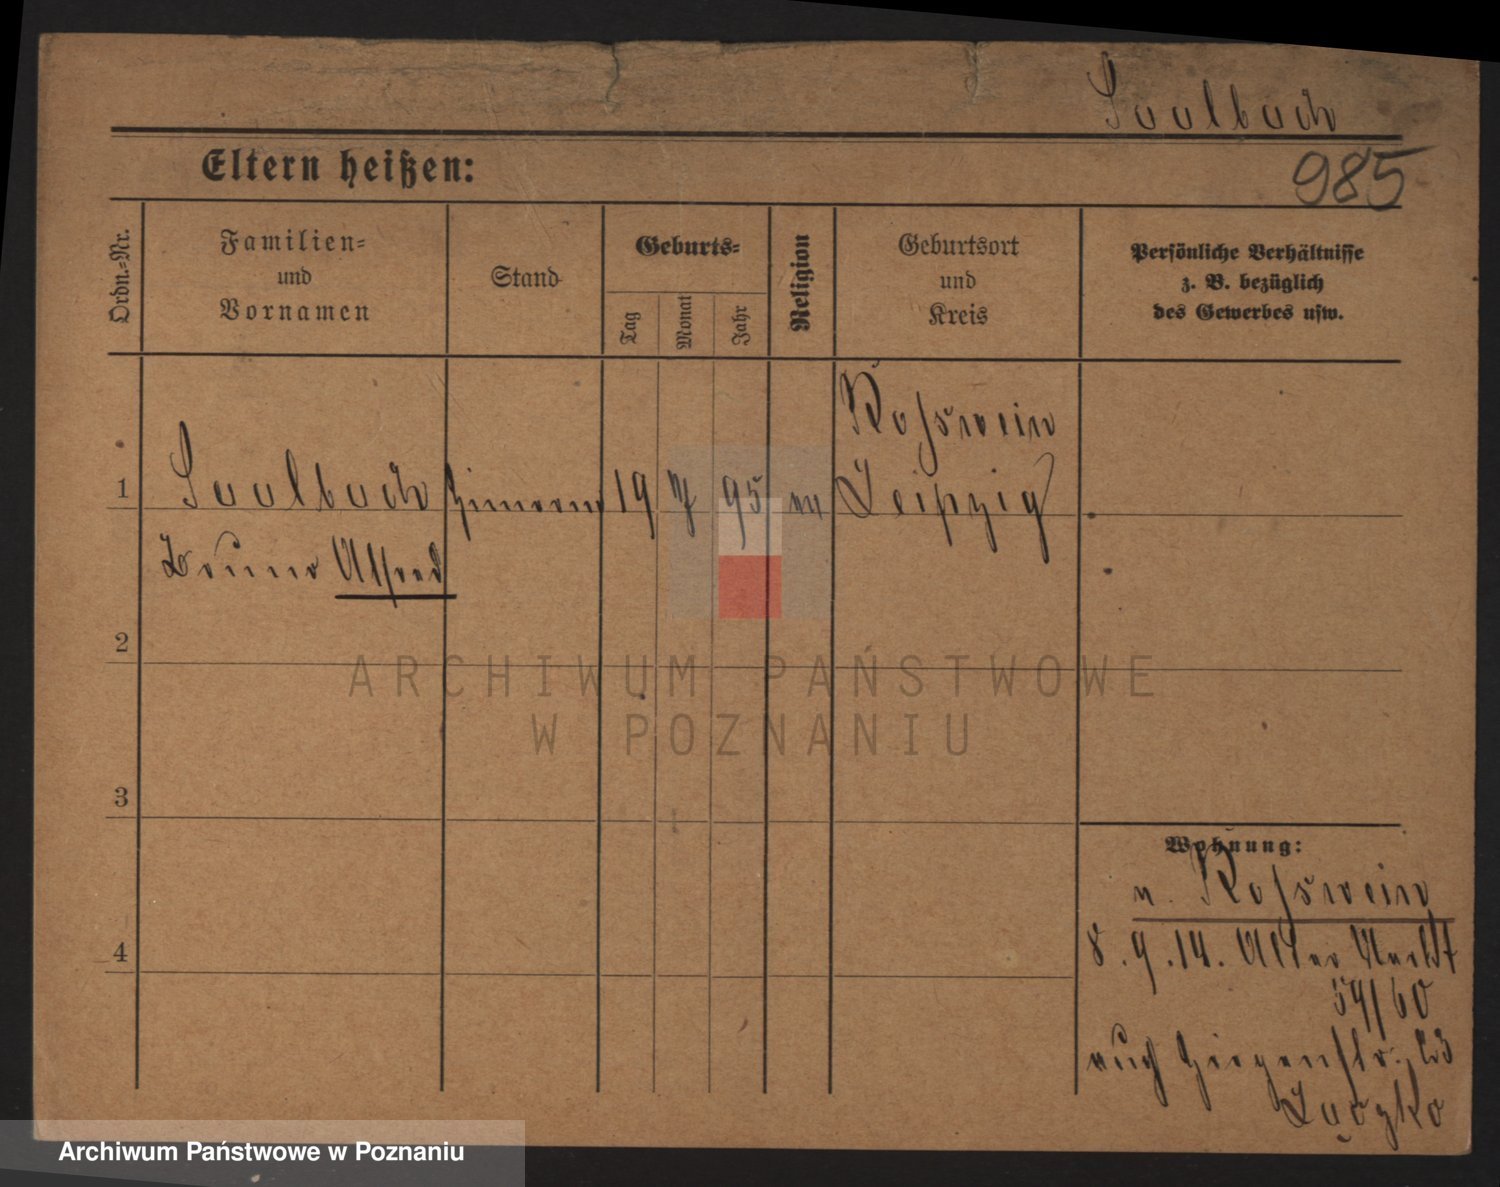 Saalbach
985
Eltern heißen:
Ordn.-Nr.
Familien-
und
Vornamen
Stand
Geburts-
Tag
Monat
Jahr
Religion
Geburtsort
und
Kreis
Persönliche Verhältnisse
z. B. bezüglich
des Gewerbes usw.
Rosswein
1 Saalbach 19 7 95 ev Leipzig
Bruno Alfred
2
3
4
ARCHIWUM PAŃSTWOWE
W POZNANIU
Wohnung:
v. Rosswein
8.9.14. Alter Markt
59/60
Archiwum Państwowe w Poznaniu